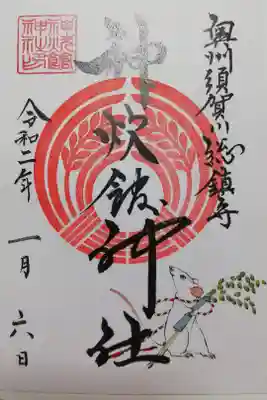 奥州須賀川総鎮守
神炊館神社
令和二年
一月六日